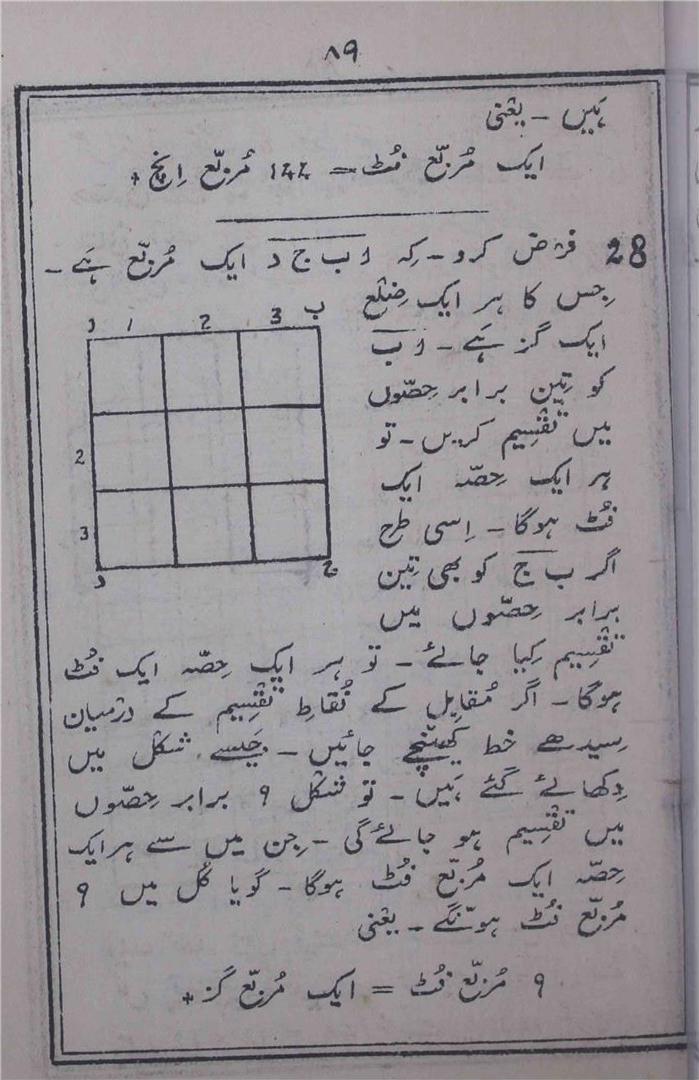 ۸۹
ہَیں ۔ یعْنی
ایک مُربّع فُٹ = 144 مُربّع اِنچ +
28 فرْض کرو ۔ کِہ ا ب ج د ایک مُربّع ہَے ۔
جِس کا ہر ایک ضِلْع
ایک گز ہَے ۔ ا ب
کو تِین برابر حِصّوں
میں تقْسِیم کریں ۔ تو
ہر ایک حِصّہ ایک
فُٹ ہوگا ۔ اِسی طرح
اگر ب ج کو بھی تِین
برابر حِصّوں میں
تقْسِیم کِیا جائے ۔ تو ہر ایک حِصّہ ایک فُٹ
ہوگا ۔ اگر مُقابِل کے نُقاطِ تقْسِیم کے درْمیان
سِیدھے خط کھینچے جائیں ۔ جَیسے شکْل میں
دِکھائے گئے ہَیں ۔ تو شکْل ۹ برابر حِصّوں
میں تقْسِیم ہو جائے گی ۔ جِن میں سے ہر ایک
حِصّہ ایک مُربّع فُٹ ہوگا ۔ گویا کُل میں ۹
مُربّع فُٹ ہونگے ۔ یعْنی
۹ مُربّع فُٹ = ایک مُربّع گز +
ا 1 2 3 ب
2
3
د ج